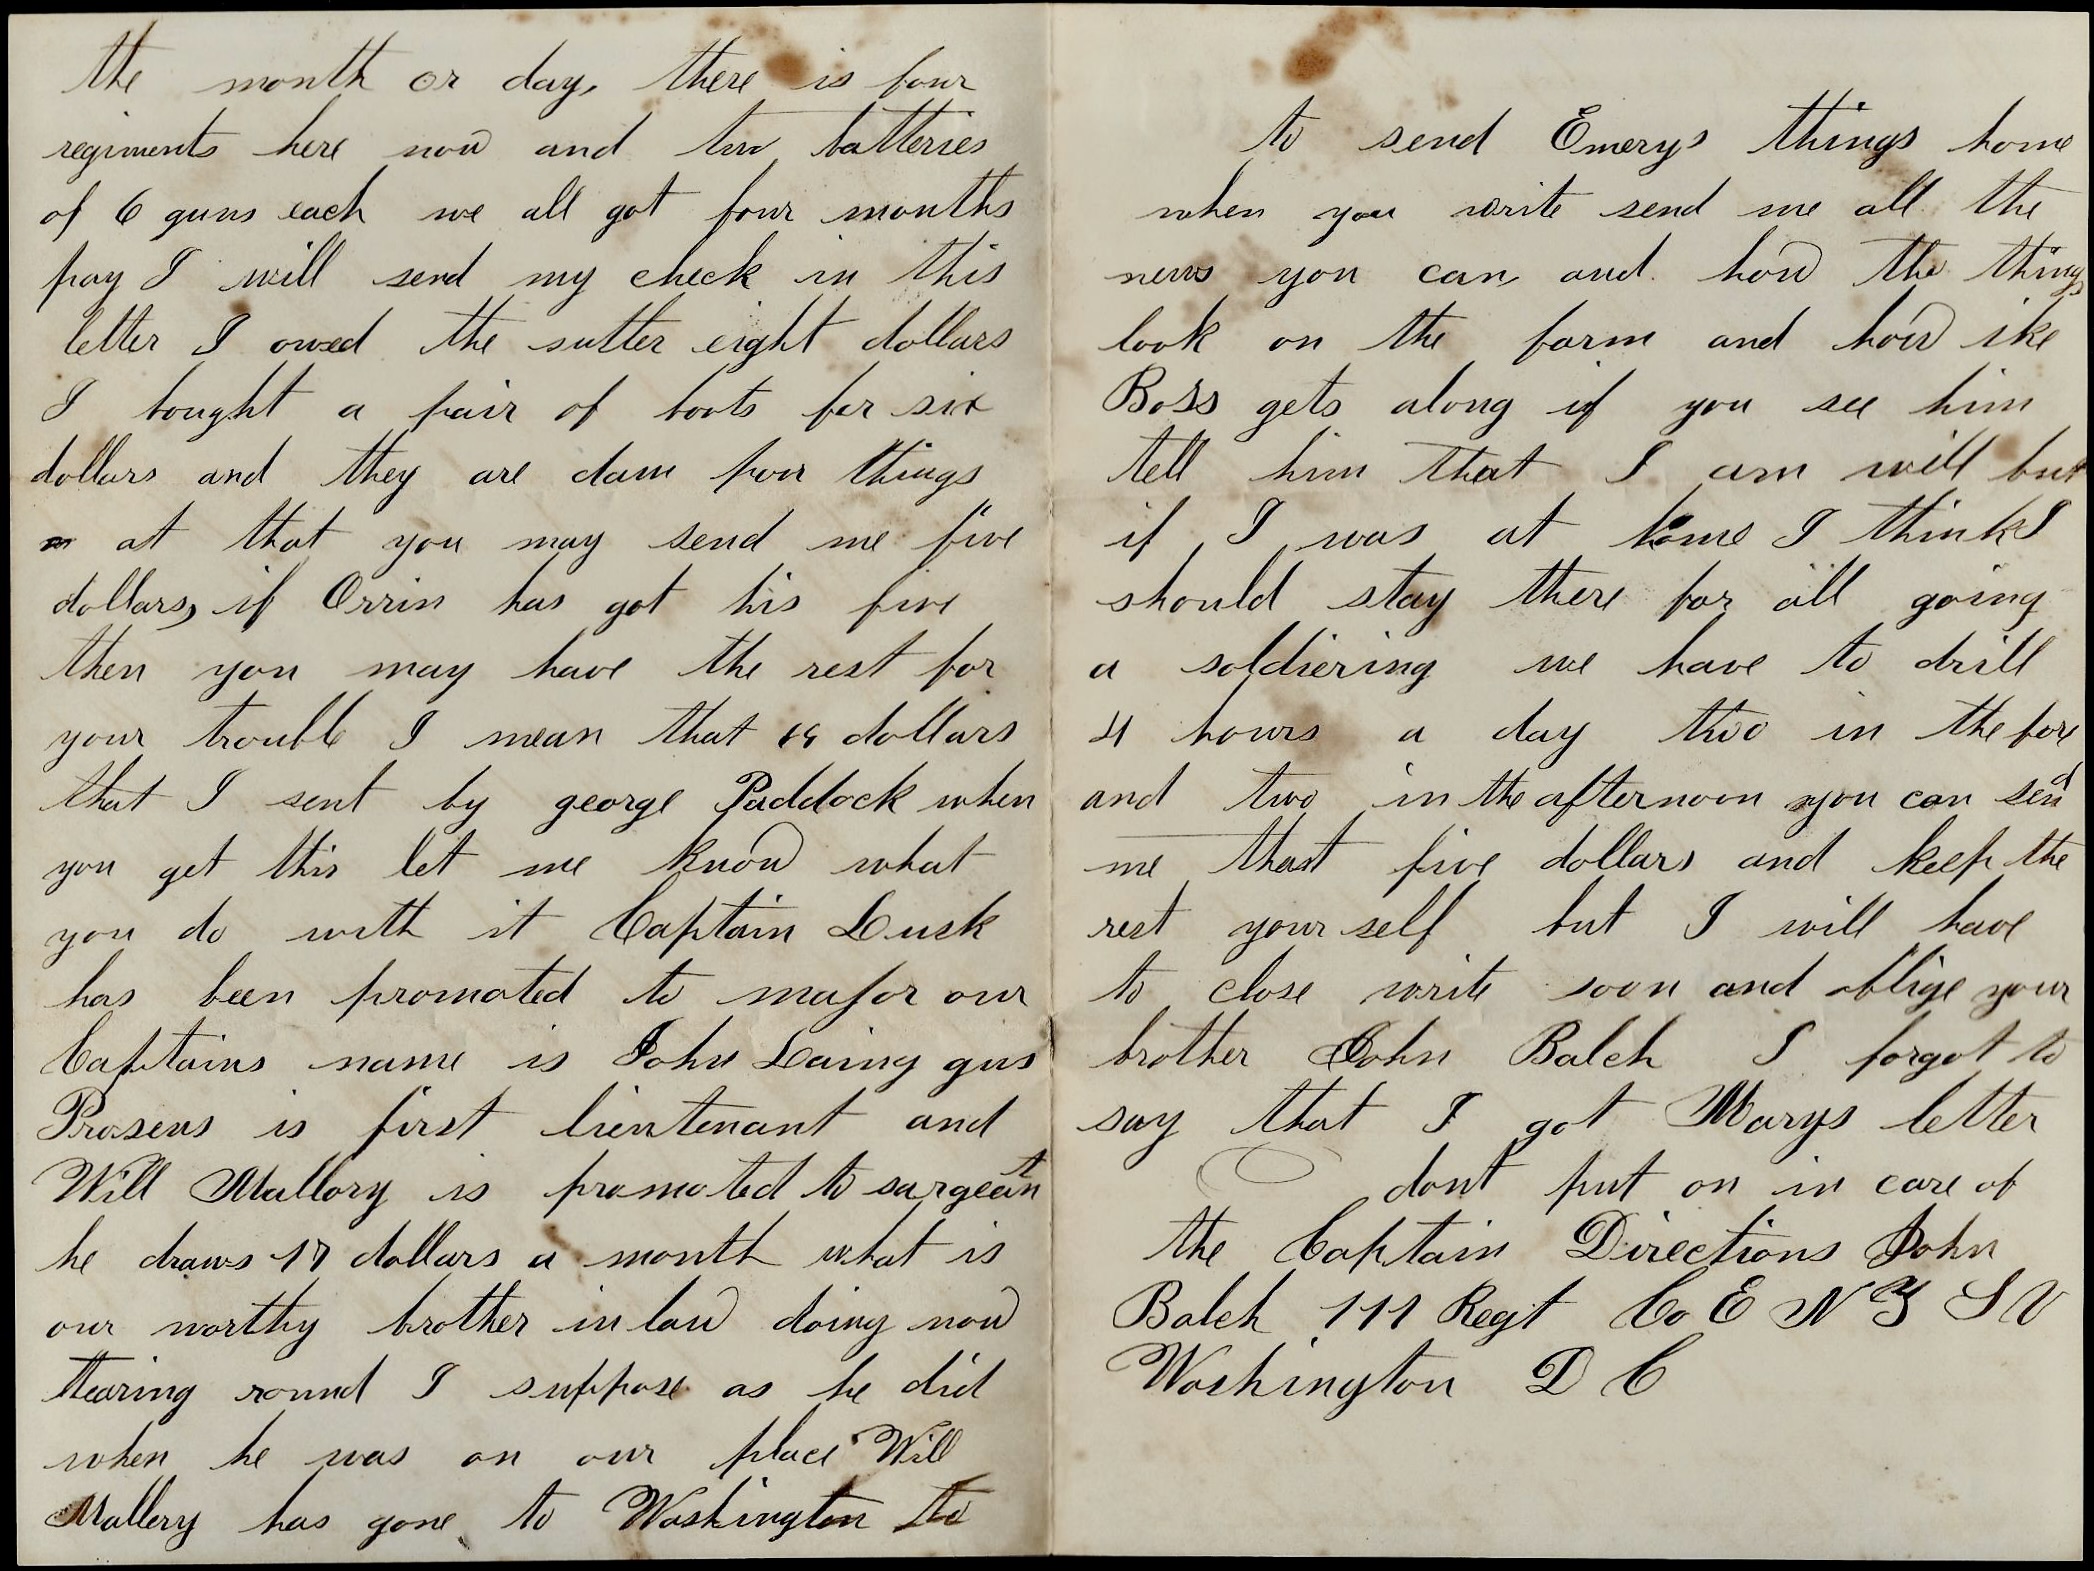 the month or day, there is four
regiments here now and two batteries
of 6 guns each we all got four months
pay I will send my check in this
letter I owed the sutler eight dollars
I bought a pair of boots for six
dollars and they are dam poor things
at that you may send me five
dollars, if Orrin has got his five
then you may have the rest for
your trouble I mean that dollars
that I sent by george Paddock when
you get this let me know what
you do with it Captain Lusk
has been promoted to major our
Captains name is John Laing gus
Prosens is first lieutenant and
Will Mallory is promoted to sargeant
he draws 17 dollars a month what is
our worthy brother in law doing now
tearing round I suppose as he did
when he was on our place Will
Mallery has gone to Washington to
to send Emerys things home
when you write send me all the
news you can and how the things
look on the farm and how ike
Boss gets along if you see him
tell him that I am well but
if I was at home I think I
should stay there for all going
a soldiering we have to drill
4 hours a day two in the fore
and two in the afternoon you can send
me that five dollars and keep the
rest your self but I will have
to close write soon and oblige your
brother John Balch I forgot to
say that I got Marys letter
dont put on in care of
the Captain Directions John
Balch 111 Regt Co E N Y S V
Washington D C